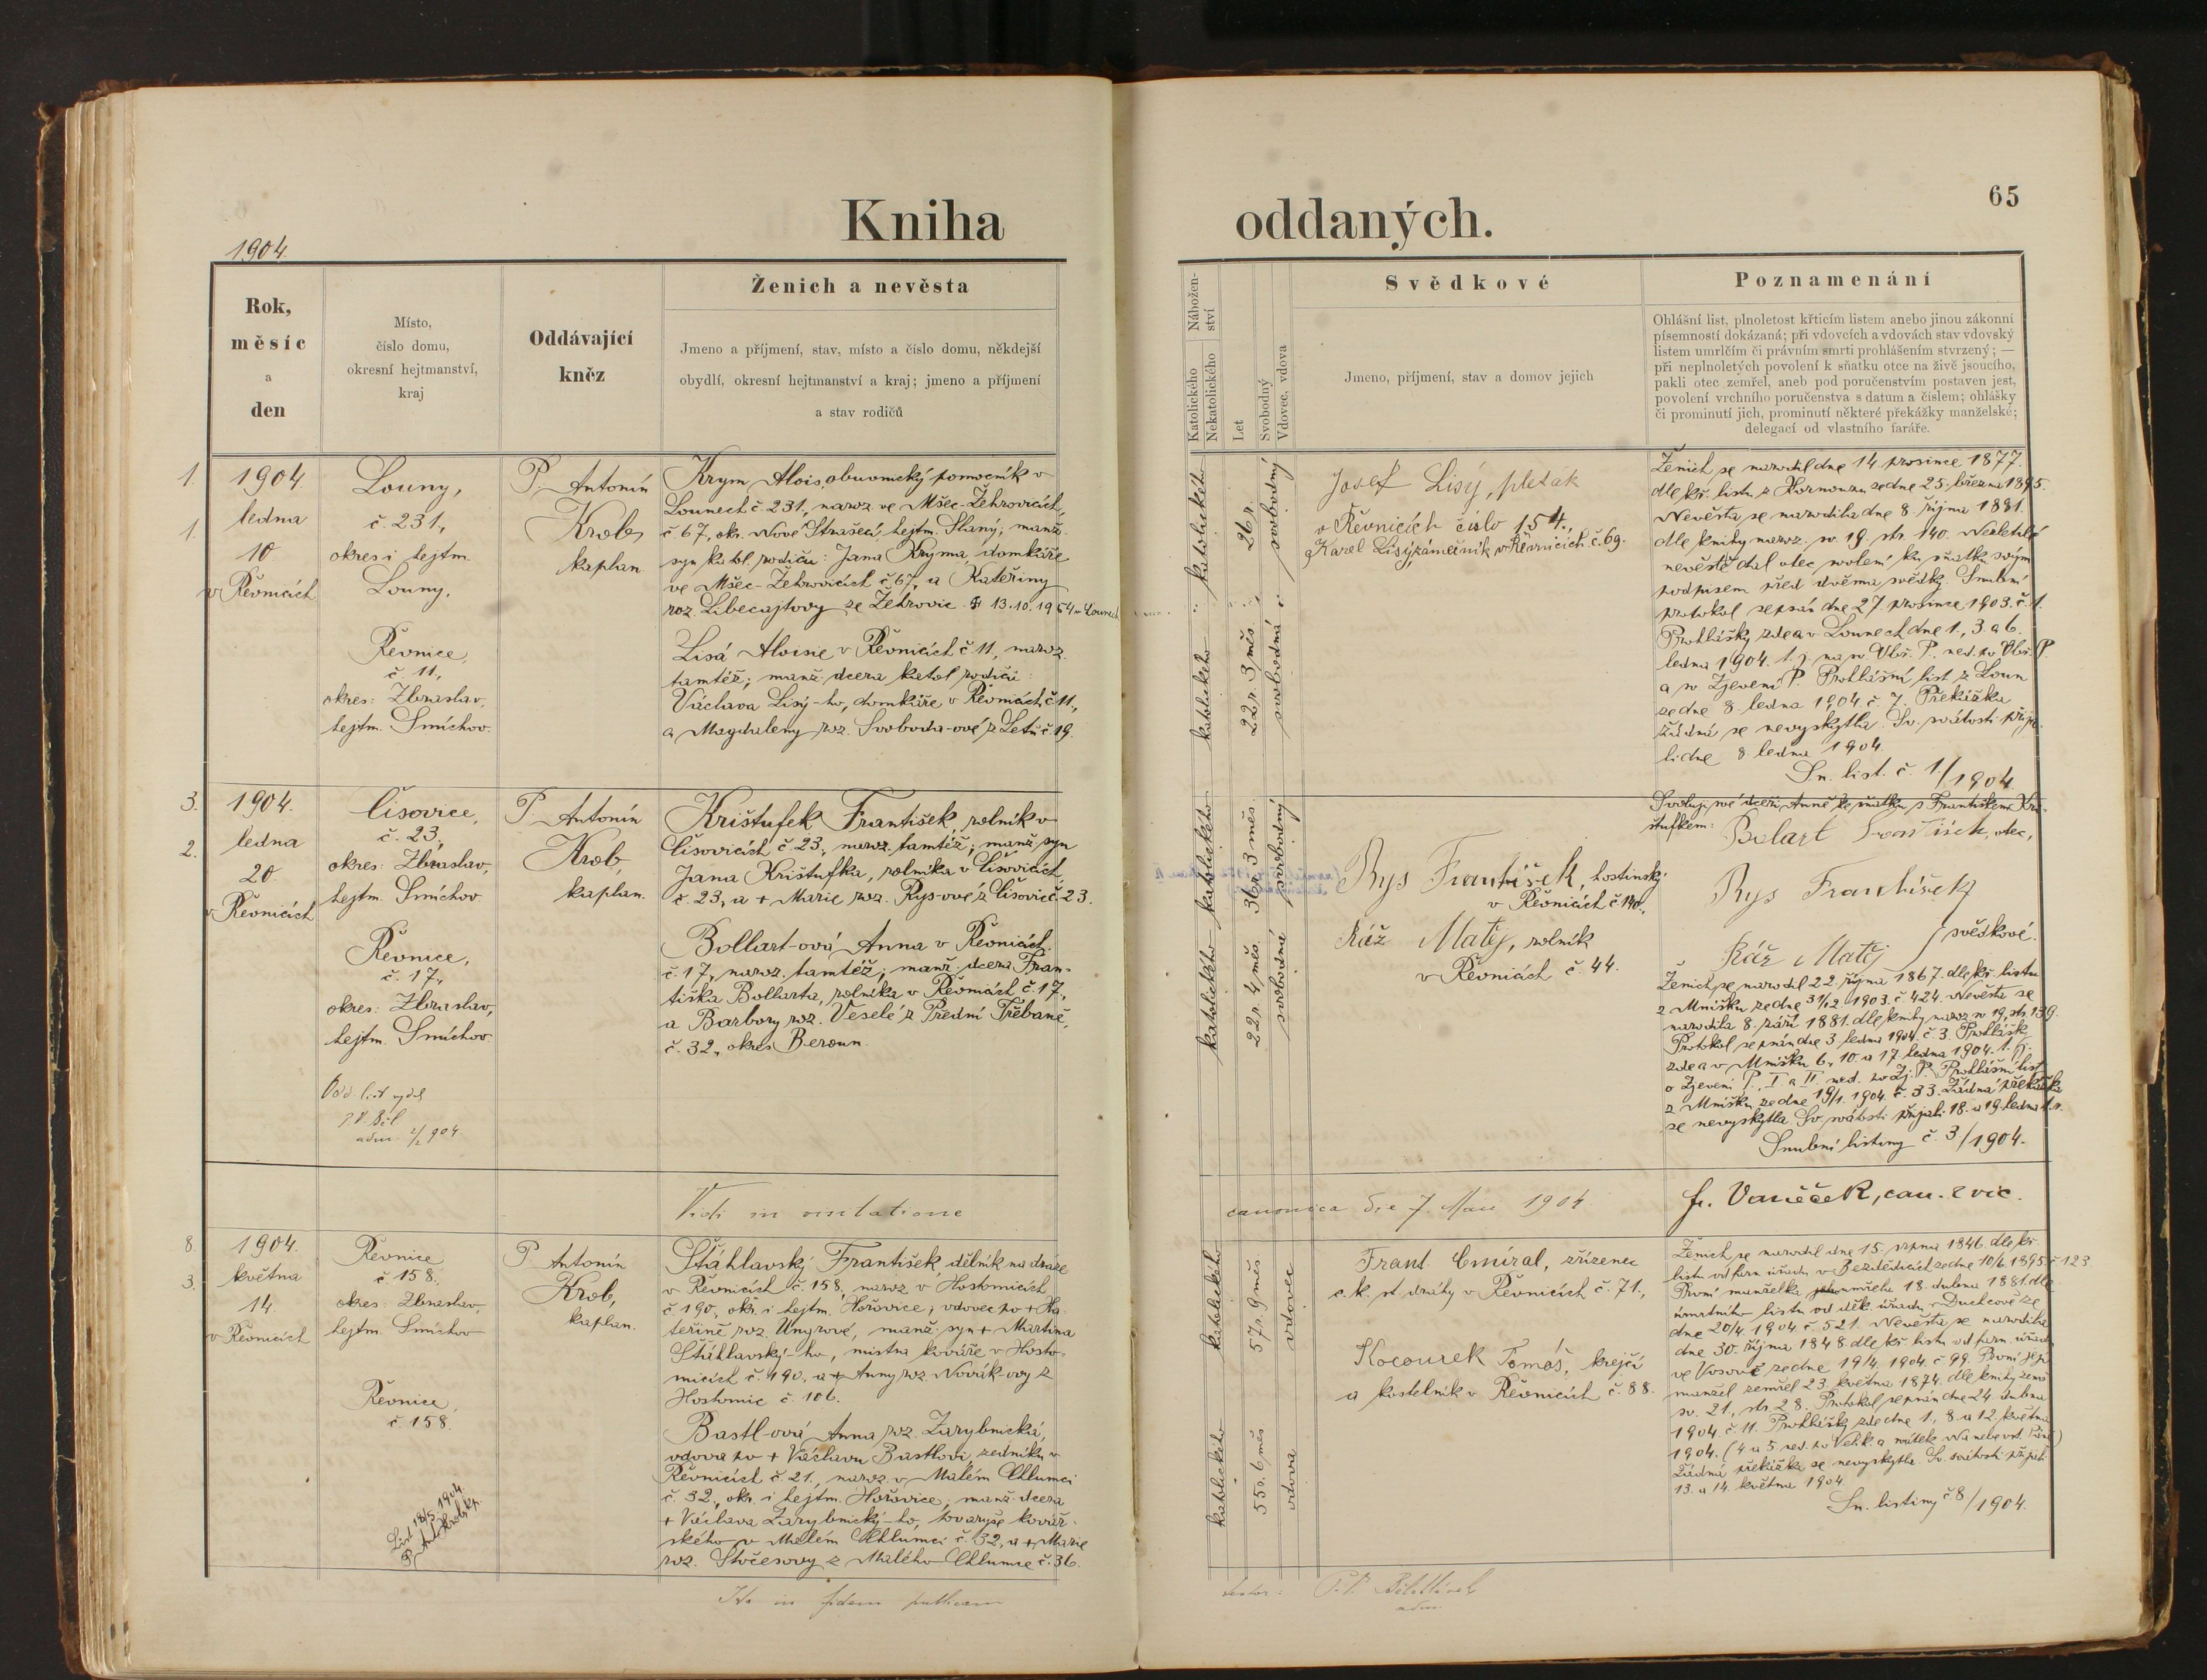 Kniha
oddaných.
65
1904.
Rok,
měsíc
a
den
Místo,
číslo domu,
okresní hejtmanství,
kraj
Oddávající
kněz
Ženich a nevěsta
Jmeno a příjmení, stav, místo a číslo domu, někdejší
obydlí, okresní hejtmanství a kraj; jmeno a příjmení
a stav rodičů
Nábožen-
ství
Katolického
Nekatolického
Let
Svobodný
Vdovec, vdova
Svědkové
Jmeno, příjmení, stav a domov jejich
Poznamenání
Ohlášní list, plnoletost křticím listem anebo jinou zákonní
písemností dokázaná; při vdovcích a vdovách stav vdovský
listem umrlčím či právním smrti prohlášením stvrzený; —
při neplnoletých povolení k sňatku otce na živě jsoucího,
pakli otec zemřel, aneb pod poručenstvím postaven jest,
povolení vrchního poručenstva s datum a číslem; ohlášky
či prominutí jich, prominutí některé překážky manželské;
delegací od vlastního faráře.
1.
1.
1904
ledna
10.
v Řevnicích
Louny,
č. 231,
okres i hejtm.
Louny.
Řevnice,
č. 11,
okres: Zbraslav,
hejtm. Smíchov.
P. Antonín
Krob,
kaplan
Krym Alois, obuvnický pomocník v
Lounech č. 231, naroz. ve Mšec-Žehrovicích,
č 67, okr. Nové Strašecí, hejtm. Slaný; manž.
syn katol. rodičů: Jana Kryma, domkáře
ve Mšec-Žehrovicích č. 67, a Kateřiny
roz. Libecajtovy ze Žehrovic. 13.10.1954 v Lounech
Lisá Aloisie v Řevnicích č 11, naroz.
tamtéž; manž. dcera katol rodičů:
Václava Lisý-ho, domkáře v Řevnicích č 11,
a Magdaleny roz. Svoboda-ové z Letů č 19.
katolického
26 r.
svobodný
katolického
22 r. 3 měs.
svobodná
Josef Lisý, pleták
v Řevnicích číslo 154.,
a Karel Lisý, zámečník v Řevnicích č. 69.
Ženich se narodil dne 14. prosince 1877.
dle kř. listu z Hornouzu ze dne 25. března 1895.
Nevěsta se narodila dne 8. října 1881.
dle knihy naroz. sv. 19. str. 140. Nezletilé
nevěstě dal otec svolení ku sňatku svým
podpisem před dvěma svědky. Snubní
protokol sepsán dne 27. prosince 1903. č. 1.
Prohlášky zde a v Lounech dne 1., 3. a 6.
ledna 1904. t. j. na n. Obř. P. ned. po Obř. P.
a n Zjevení P. Prohlášní list z Loun
ze dne 8. ledna 1904 č. 7. Překážka
žádná se nevyskytla. Sv. svátosti přija-
li dne 8. ledna 1904.
Sn. list. č. 1/1904.
3.
2.
1904.
ledna
20
v Řevnicích
Čisovice,
č. 23,
okres: Zbraslav,
hejtm. Smíchov
Řevnice,
č. 17.,
okres: Zbraslav,
hejtm. Smíchov.
Odd. list vydal
adm. 2/2 904.
P. Antonín
Krob,
kaplan.
Krištufek František, rolník v
Čisovicích č 23., naroz. tamtéž; manž. syn
Jana Krištufka, rolníka v Čisovicích,
č. 23, a + Marie roz. Rys-ové z Čisovic č. 23.
Bollart-ová Anna v Řevnicích
č. 17, naroz. tamtéž; manž. dcera Fran-
tiška Bollarta, rolníka v Řevnicích č. 17.,
a Barbory roz. Veselé z Přední Třebaně,
č. 32, okres Beroun.
katolického
36 r. 3 měs.
svobodný
katolického
22 r. 4 měs.
svobodná
Rys František, hostinský
v Řevnicích č 140.,
Ráž Matěj, rolník
v Řevnicích č. 44.
Svoluji své dceři Anně ke sňatku s Františkem Kri-
štufkem: Bolart František, otec,
Rys František
Ráž Matěj
svědkové.
Ženich se narodil 22. října 1867. dle kř. listu
z Mníšku ze dne 31/12. 1903. č. 424. Nevěsta se
narodila 8. září 1881. dle knihy naroz. sv 19, str. 139.
Protokol sepsán dne 3. ledna 1904. č. 3. Prohlášk.
zde a v Mníšku 6., 10. a 17. ledna 1904. t. j.
o Zjevení P., I. a II. ned. po Zj. P. Prohlášní list
z Mníšku ze dne 19/1. 1904. č. 33. Žádná překážka
se nevyskytla. Sv. svátosti přijali 18. a 19. ledna t. r.
Snubní listiny č. 3/1904.
Vidi in visitatione
canonica die 7. Maii 1904
fr. Vaněček, can. e vic.
8.
3.
1904.
května
14.
v Řevnicích
Řevnice
č. 158.,
okres: Zbraslav,
hejtm. Smíchov
Řevnice,
č. 158.
List 18/5 1904.
P. Ant. Krob kp.
P. Antonín
Krob,
kaplan.
Štáhlavský František, dělník na dráze
v Řevnicích č. 158, naroz. v Hostomicích
č 190, okr. i hejtm. Hořovice; vdovec po + Ka-
teřině roz. Ungrové, manž. syn + Martina
Štáhlavský-ho, mistra kováře v Hosto-
micích č. 190, a + Anny roz. Novák-ovy z
Hostomic č. 106.
Bastl-ová Anna roz. Zarybnická,
vdova po + Václavu Bastlovi, zedníku v
Řevnicích č. 21., naroz. v Malém Chlumci
č. 32, okr. i hejtm. Hořovice, manž. dcera
+ Václava Zarybnický-ho, tovaryše kovář-
ského v Malém Chlumci č. 32, a + Marie
roz. Stočesovy z Malého Chlumce č. 36.
katolického
57 r. 9 měs.
vdovec
katolického
55 r. 6 měs
vdova
Frant. Cmíral, zřízenec
c. k. st. dráhy v Řevnicích č. 71.,
Kocourek Tomáš, krejčí
a kostelník v Řevnicích č. 88.
Ženich se narodil dne 15. srpna 1846. dle kř.
listu od farn. úřadu v Bezdědicích ze dne 10/6. 1895. č 123
První manželka umřela 18. dubna 1881. dle
úmrtního listu od děk. úřadu v Duchcově ze
dne 20/4. 1904. č. 521. Nevěsta se narodila
dne 30. října 1848. dle kř. listu od farn. úřadu
ve Vosově ze dne 19/4. 1904. č. 99. První její
manžel zemřel 23. května 1874. dle knihy zemř.
sv. 21., str. 28. Protokol sepsán dne 24. dubna
1904. č. 11. Prohlášky zde dne 1., 8. a 12. května
1904. (4. a 5. ned. po Velik. a svátek Na nebe vst. Páně)
Žádná překážka se nevyskytla. Sv. svátosti přijali
13. a 14. května 1904.
Sn. listiny č 8/1904.
Ita in fidem publicam